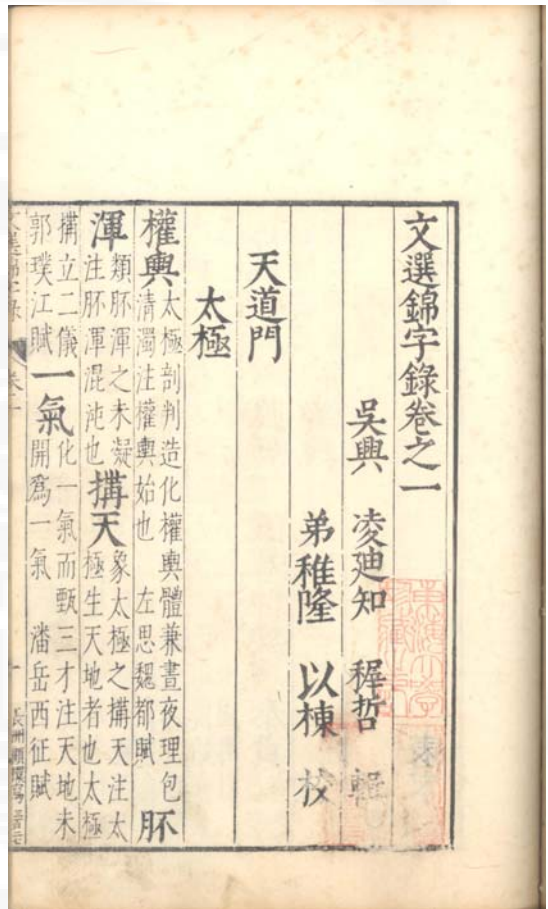 文選錦字錄卷之一
吳興 凌廸知 穉哲 輯
弟稚隆 以棟 校
天道門
太極
權輿太極剖判造化權輿體兼晝夜理包
清濁注權輿始也 左思魏都賦胚
渾類胚渾之未凝
注胚渾混沌也搆天象太極之搆天注太
極生天地者也太極
搆立二儀
郭璞江賦一氣化一氣而甄三才注天地未
開爲一氣 潘岳西征賦